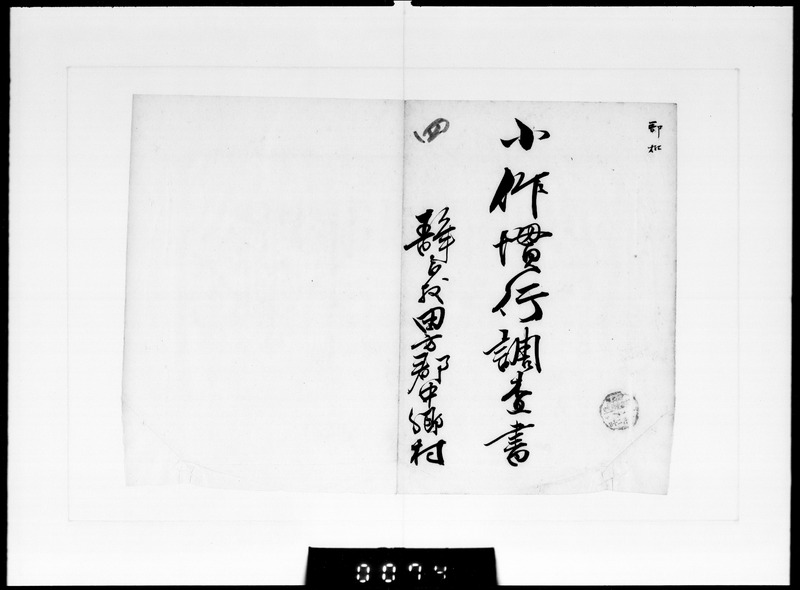 小作慣行調査書
四
静岡縣田方郡中郷村
0074